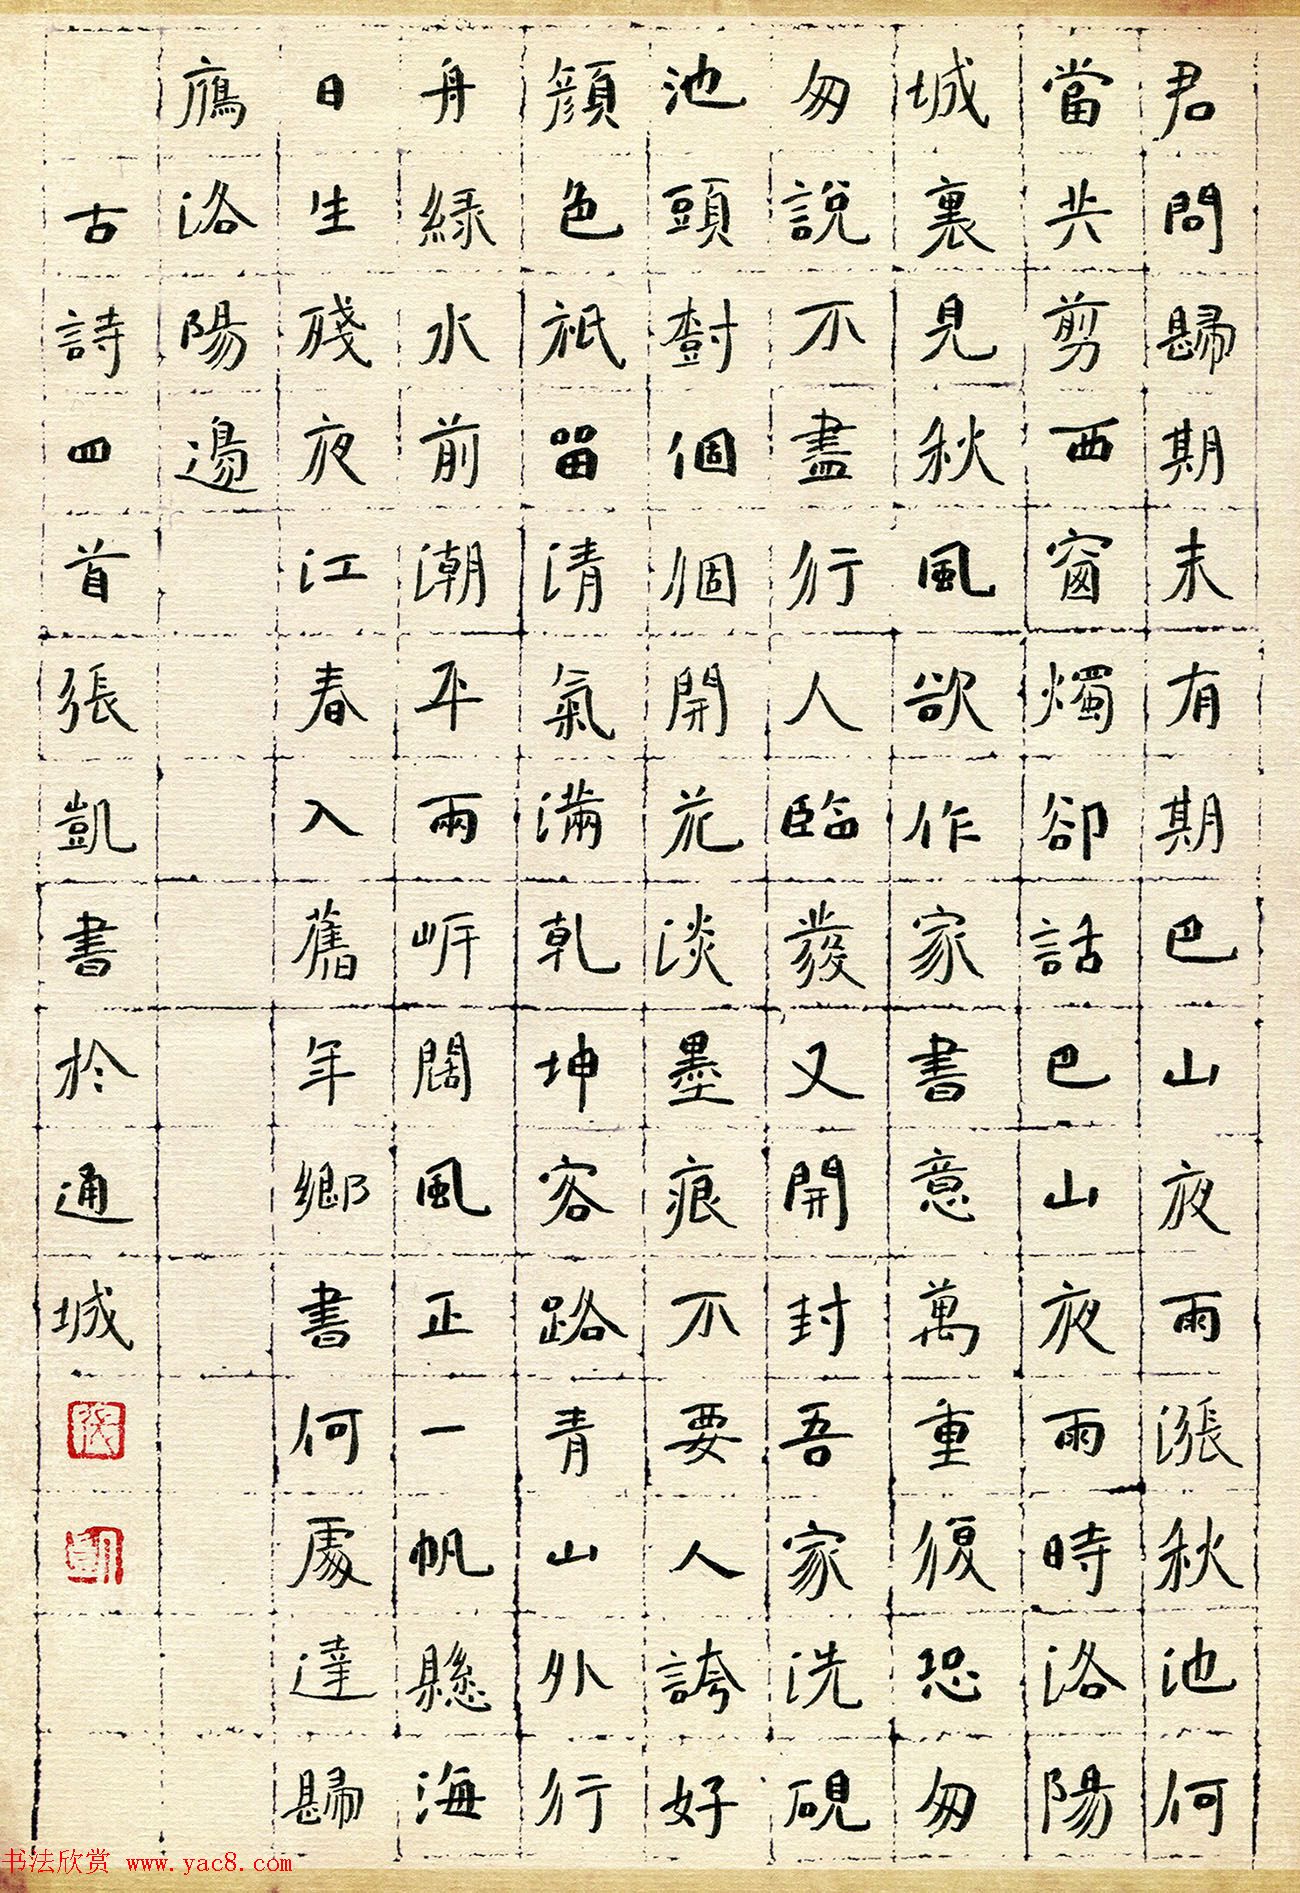 君問歸期未有期巴山夜雨漲秋池何
當共剪西窗燭卻話巴山夜雨時洛陽
城裏見秋風欲作家書意萬重復恐匆
匆說不盡行人臨發又開封吾家洗硯
池頭樹個個開花淡墨痕不要人誇好
顏色衹留清氣滿乾坤客路青山外行
舟綠水前潮平兩岸闊風正一帆懸海
日生殘夜江春入舊年鄉書何處達歸
鴈洛陽邊
古詩四首張凱書於通城
书法欣赏 www.yac8.com